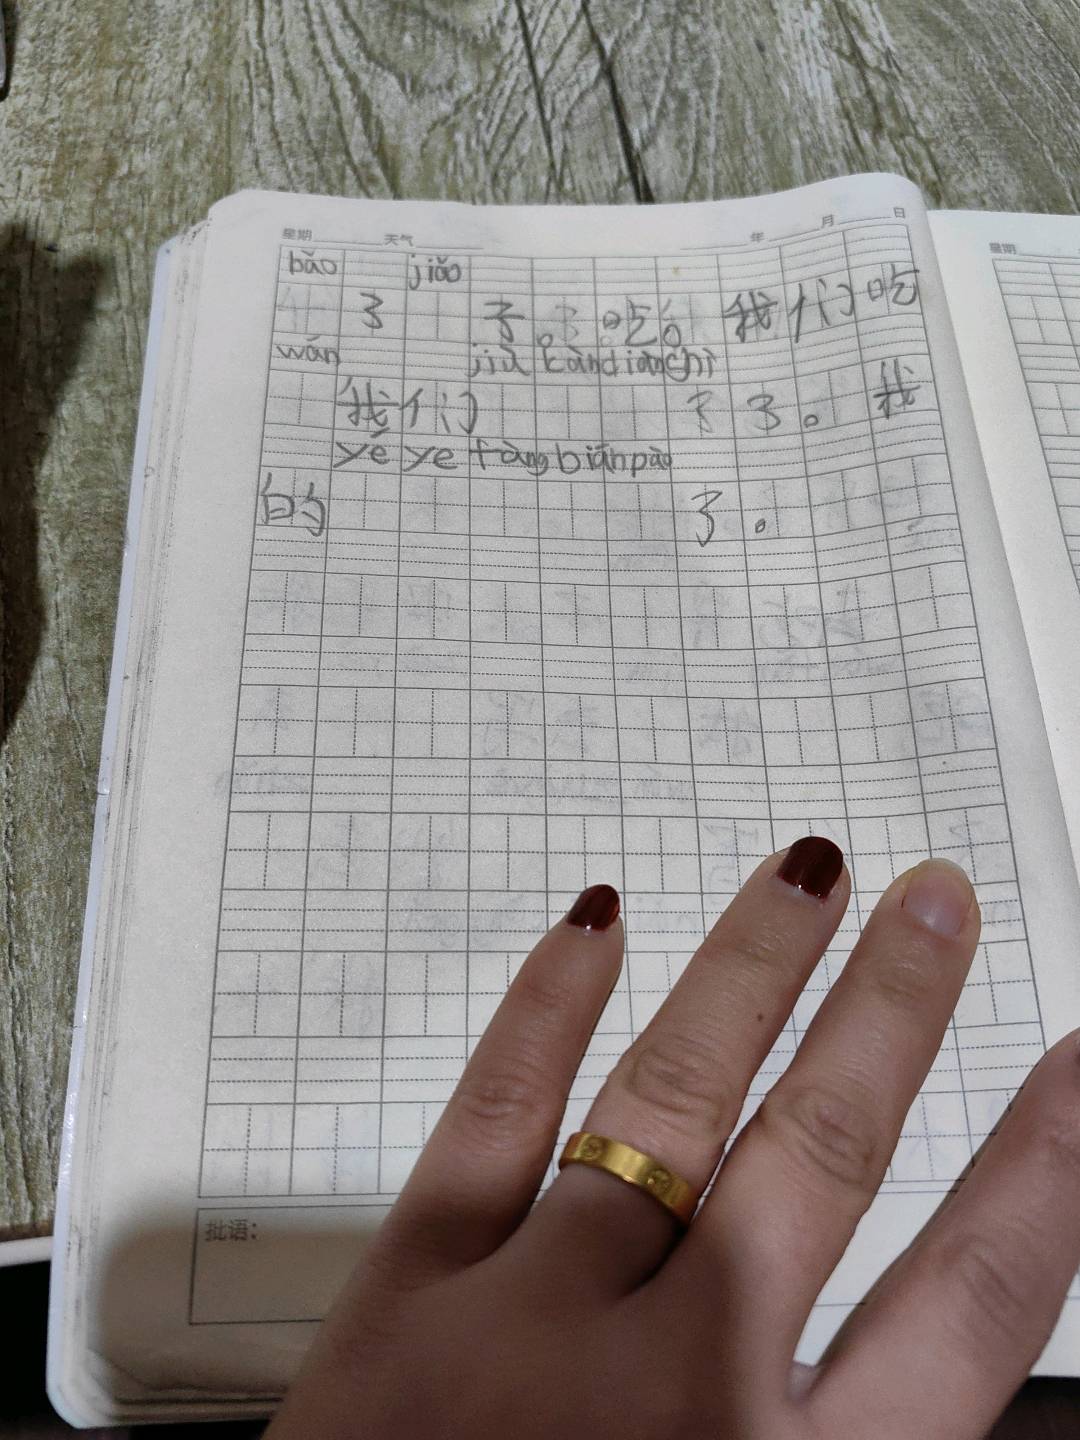 星期 天气 年 月 日
星期
bǎo jiǎo
了 子。吃。我们吃
wán jiù kàn diàn shì
我们 了。我
yé ye fàng biān pào
的 了。
批语: